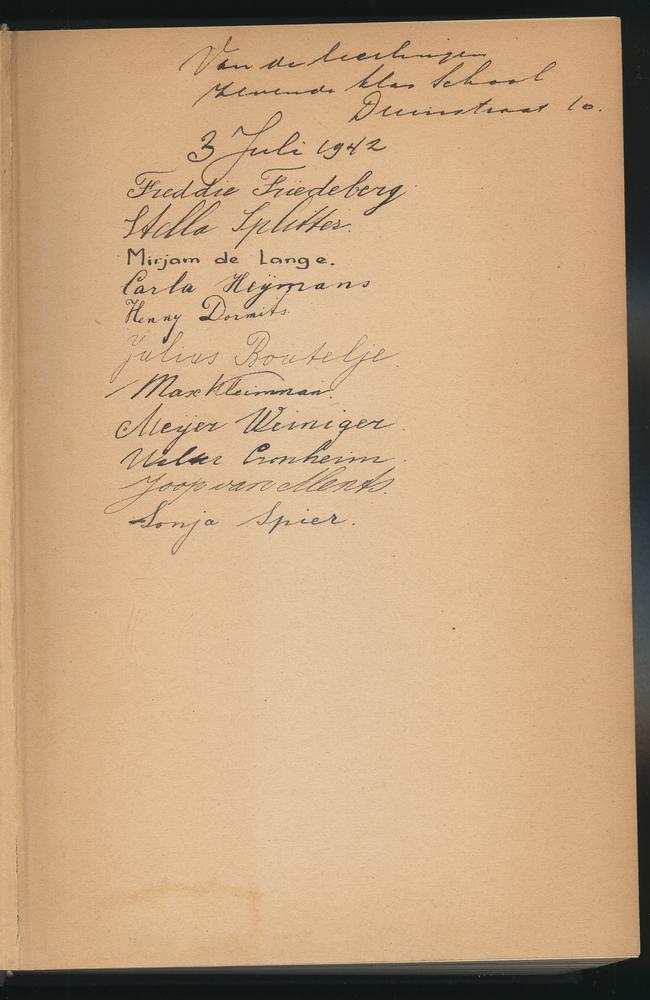 Van de leerlingen
zevende klas School
Duinstraat 10.
3 Juli 1942
Freddie Friedeberg
Stella Splitter.
Mirjam de Lange.
Carla Heÿmans
Henny Dormits.
Julius Boutelje.
Max Kleimman.
Meijer Weiniger.
Walter Cronheim.
Joop van Ments.
Sonja Spier.